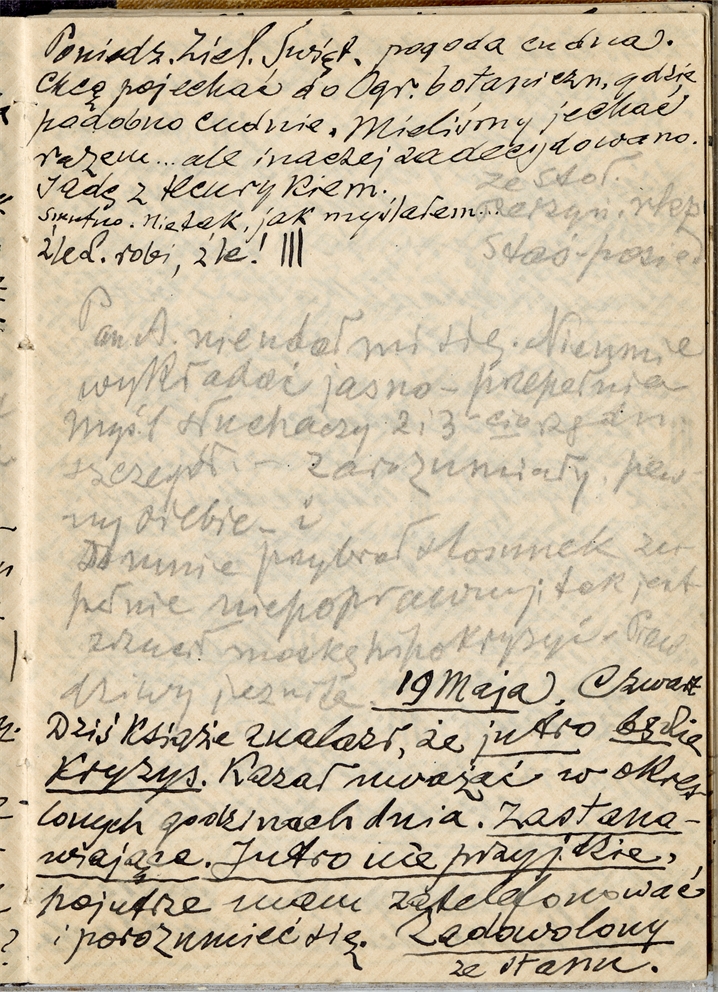 Poniedz. Ziel. Świąt. pogoda cudna.
Chcę pojechać do Ogr. botaniczn. gdzie
podobno cudnie. Mieliśmy jechać
razem... ale inaczej zadecydowano.
Jadę z Henrykiem.
Smutno. Nie tak, jak myślałem...
Źle S. robi, źle! |||
ze stoł.
Staś-
Pan A. nie udał mi się. Nie umie
wykładać jasno - przepełnia
myśl słuchaczy 2 i 3
szczegół. - Zarozumiały, pew-
ny siebie - i
Do mnie przybrał stosunek zu-
pełnie niepoprawny; tak jest
zdziać maskę hipokryzyi - Praw
dziwy jezuita
19 Maja, Czwart
Dziś Książe znalazł, że jutro będzie
Kryzys. Kazał uważać w okreś-
lonych godzinach dnia. Zastana-
wiające. Jutro nie przyjdzie,
pojutrze mam zatelefonować
i porozumieć się. Zadowolony
ze stanu.